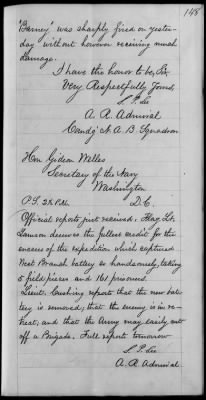 148
"Barney" was sharply fired on yester-
day without however receiving much
damage.
I have the honor to be, Sir
Very Respectfully Yours,
S. P. Lee
A. R. Admiral
Comdg N. A. B. Squadron
Hon Gideon Welles
Secretary of the Navy
Washington
D. C.
P.S. 2½ P.M.
Official reports just received. Flag Lt.
Lamson deserves the fullest credit for the
success of the expedition which captured
West Branch battery so handsomely, taking
5 field pieces and 161 prisoners.
Lieut. Cushing reports that the new bat-
tery is removed; that the enemy is in re-
treat, and that the Army may easily cut
off a Brigade. Full report tomorrow
S. P. Lee
A. R. Admiral